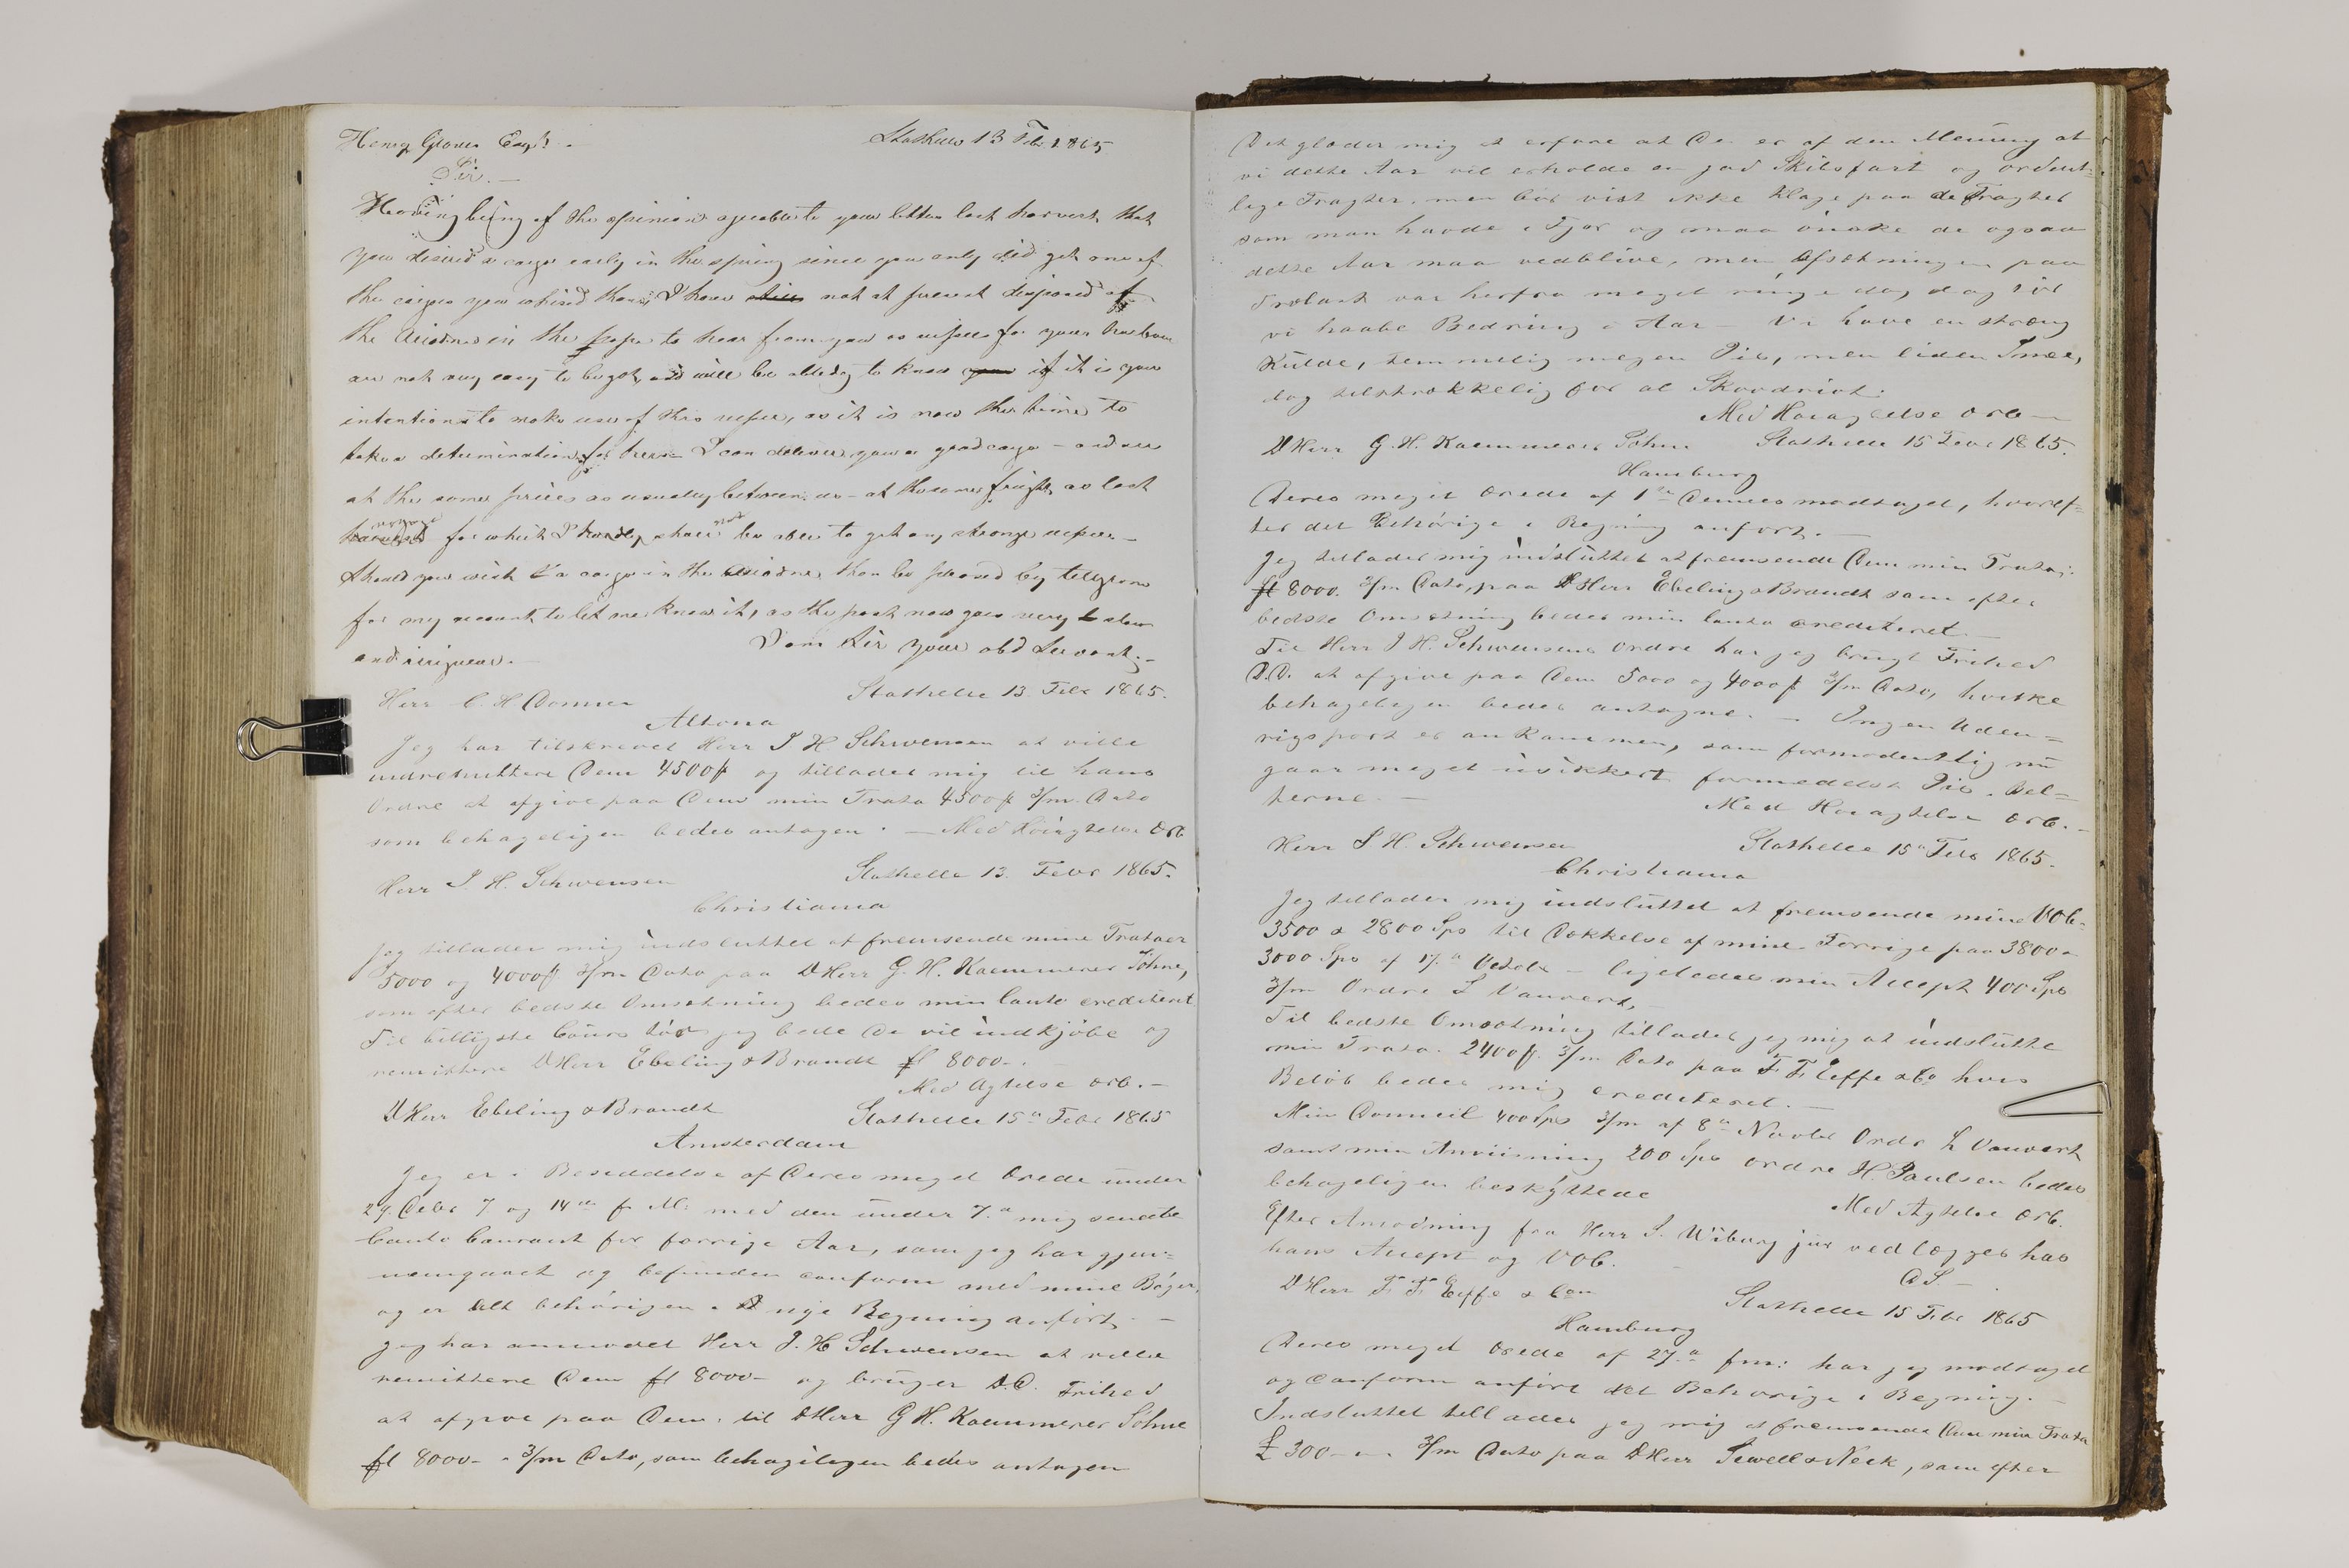 Henry Glover Esqr. Stathelle 13 Febr 1865
Sir. —
Having being of the opinion agreable to your letter last harvest that
you desired a cargo early in the spring since you only did get one of
the cargos you wished than I have not at present disposed of
the Ariadne in the hope to hear from you as wifses for your harbour
are not any easy to be got, and will be obliedg to know if it is your
intention to make use of this vefsel, as it is now the time to
take a determination for here I can deliver you a good cargo — and
at the same prices as usualy between us — at the same freight as last
voyage for which I hardly shall not be able to get any strange vefsel —
Should you wish a cargo in the Ariadne than be pleased by telegram
for my account to let me know it, as the post now goes very slow
and irrigular. — I am Sir your obd Servant. —
Herr C. H. Donner Stathelle 13. Febr 1865.
Altona
Jeg har tilskrevet Herr J H Schwensen at ville
indremittere Dem 4500 og tillader mig til hans
Ordre at afgive paa Dem min Trata 4500 3/m Dato
som behageligen bedes antagen. — Med Höiagtelse Erb
Herr J. H. Schwensen Stathelle 13. Febr 1865.
Christiania
Jeg tillader mig indsluttet at fremsende mine Trataer
5000 og 4000 3/m Dato paa DHerr G. H. Kaemmerer Söhne,
som efter bedste Omsætning bedes min Conto crediteret
Til billigste Cours tör jeg bede De vil indkjöbe og
remittere DHerr Ebeling & Brandt fl 8000 —.
Med Agtelse Erb. —
DHerr Ebeling & Brandt Stathelle 15de Febr 1865
Amsterdam
Jeg er i Besiddelse af Deres meget Ærede under
29. Debr 7. og 14de f. M. med den under 7. mig sendte
Conto Courant for forrige Aar, som jeg har gjen=
nemgaaet og befunden conform med mine Böger,
og er Alt behörigen i nye Regning anfört. —
Jeg har anmodet Herr J. H Schwensen at ville
remittere Dem fl 8000 — og bruger D.D. Frihed
at afgive paa Dem til DHerr G H. Kaemmerer Söhne
fl 8000 — 3/m Dato, som behageligen bedes antagen
Det glæder mig at erfare at De er af den Mening at
vi dette Aar vil erholde en god Skibsfart og ordent=
lige Fragter, men bör vist ikke klage paa de Fragter
som man havde i Fjor og maa önske de ogsaa
dette Aar maa vedblive, men Afsætningen paa
Trælast var herfra meget ringe dog dog vil
vi haabe Bedring i Aar — Vi have en stræng
Kulde, temmelig megen Iis, men liden Snee,
dog tilstrækkelig for al Skovdrivt.
Med Höiagtelse Erb —
DHerr G. H. Kaemmerer Söhne Stathelle 15 Febr 1865.
Hamburg
Deres meget Ærede af 1ste Dennes modtaget, hvoref=
ter det Behörige i Regning anfört. —
Jeg tillader mig indsluttet at fremsende Dem min Trata:
fl 8000. 3/m Dato, paa DHerr Ebeling & Brandt som efter
bedste Omsætning bedes min Conto crediteret. —
Til Herr J H. Schwensens Ordre har jeg brugt Frihed
D.D. at afgive paa Dem 5000 og 4000 3/m Dato, hvilke
behageligen bedes antagne. — Ingen Uden=
rigspost er ankommen, som formodentlig nu
gaar meget usikkert formedelst Iis i Bel=
terne. — Med Höiagtelse Erb. —
Herr J H. Schwensen Stathelle 15de Febr 1865.
Christiania
Jeg tillader mig indsluttet at fremsende mine VOb=
3500 a 2800 Sps til Dækkelse af mine Forrige paa 3800 a
3000 Sps af 17. Octobr — ligeledes min Accept 400 Sps
3/m Ordre L Vauvert,
Til bedste Omsætning tillader jeg mig at indslutte
min Trata. 2400 3/m Dato paa F F Eiffe & Co hvis
Belöb bedes mig crediteret. —
Min Domicil 400 Sps 3/m af 8de Novbr Ordr L Vauvert
samt min Anviisning 200 Sps ordre H. Paulsen bedes
behageligen beskyttede Med Agtelse Erb.
Efter Anmodning fra Herr S. Wiborg jur vedlægges has
hans Accept og VOb. — D S. —
DHerr F F Eiffe & Con Stathelle 15 Febr 1865
Hamburg
Deres meget Ærede af 27de fm: har jeg modtaget
og conform anfört det Behörige i Regning. —
Indsluttet tillader jeg mig at fremsende Dem min Trata
£ 300 — 3/m Dato paa DHerr Sewell & Neck, som efter